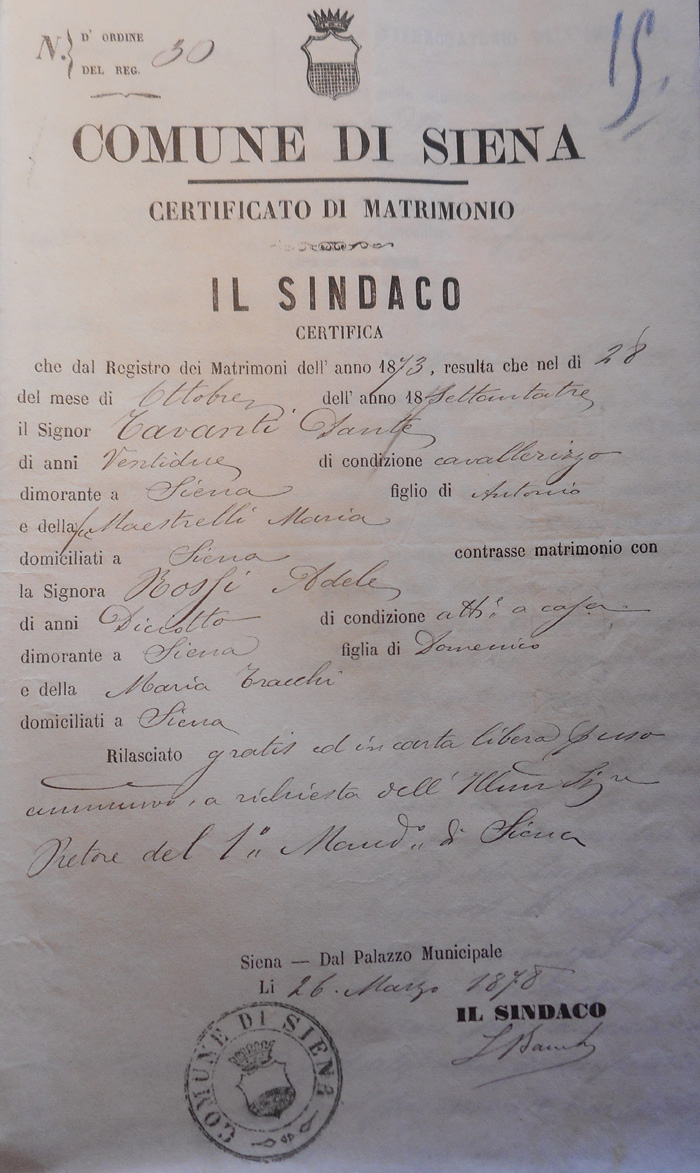 N. D' ORDINE
DEL REG. 30
15.
COMUNE DI SIENA
CERTIFICATO DI MATRIMONIO
IL SINDACO
CERTIFICA
che dal Registro dei Matrimoni dell' anno 1873, resulta che nel dì 28
del mese di Ottobre dell' anno 18 settantatre
il Signor Tavanti Dante
di anni Ventidue di condizione cavallerizzo
dimorante a Siena figlio di Antonio
e della fu Maestrelli Maria
domiciliati a Siena contrasse matrimonio con
la Signora Rossi Adele
di anni Diciotto di condizione att.e a casa
dimorante a Siena figlia di Domenico
e della Maria Tracchi
domiciliati a Siena
Rilasciato gratis ed in carta libera per uso
a richiesta dell' Illmo Sig.re
Pretore del 1° Mand.° di Siena
Siena — Dal Palazzo Municipale
Li 26. Marzo 1878
IL SINDACO
COMUNE DI SIENA